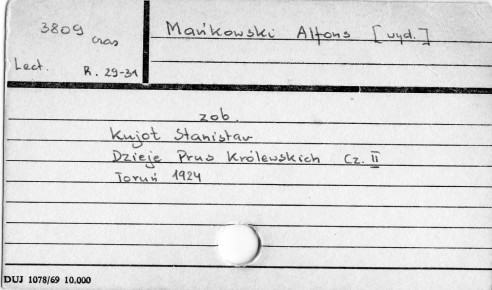 3809 czas
Lect. R. 29-31
Mańkowski Alfons [wyd.]
zob.
Kujot Stanisław
Dzieje Prus Królewskich Cz. II
Toruń 1924
DUJ 1078/69 10.000